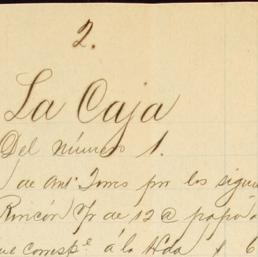 2.
La Caja
Del número 1.
de Antº Torres por los sigui
Rincón Yr de 12 @ papa
que correspe á la Hda y 6